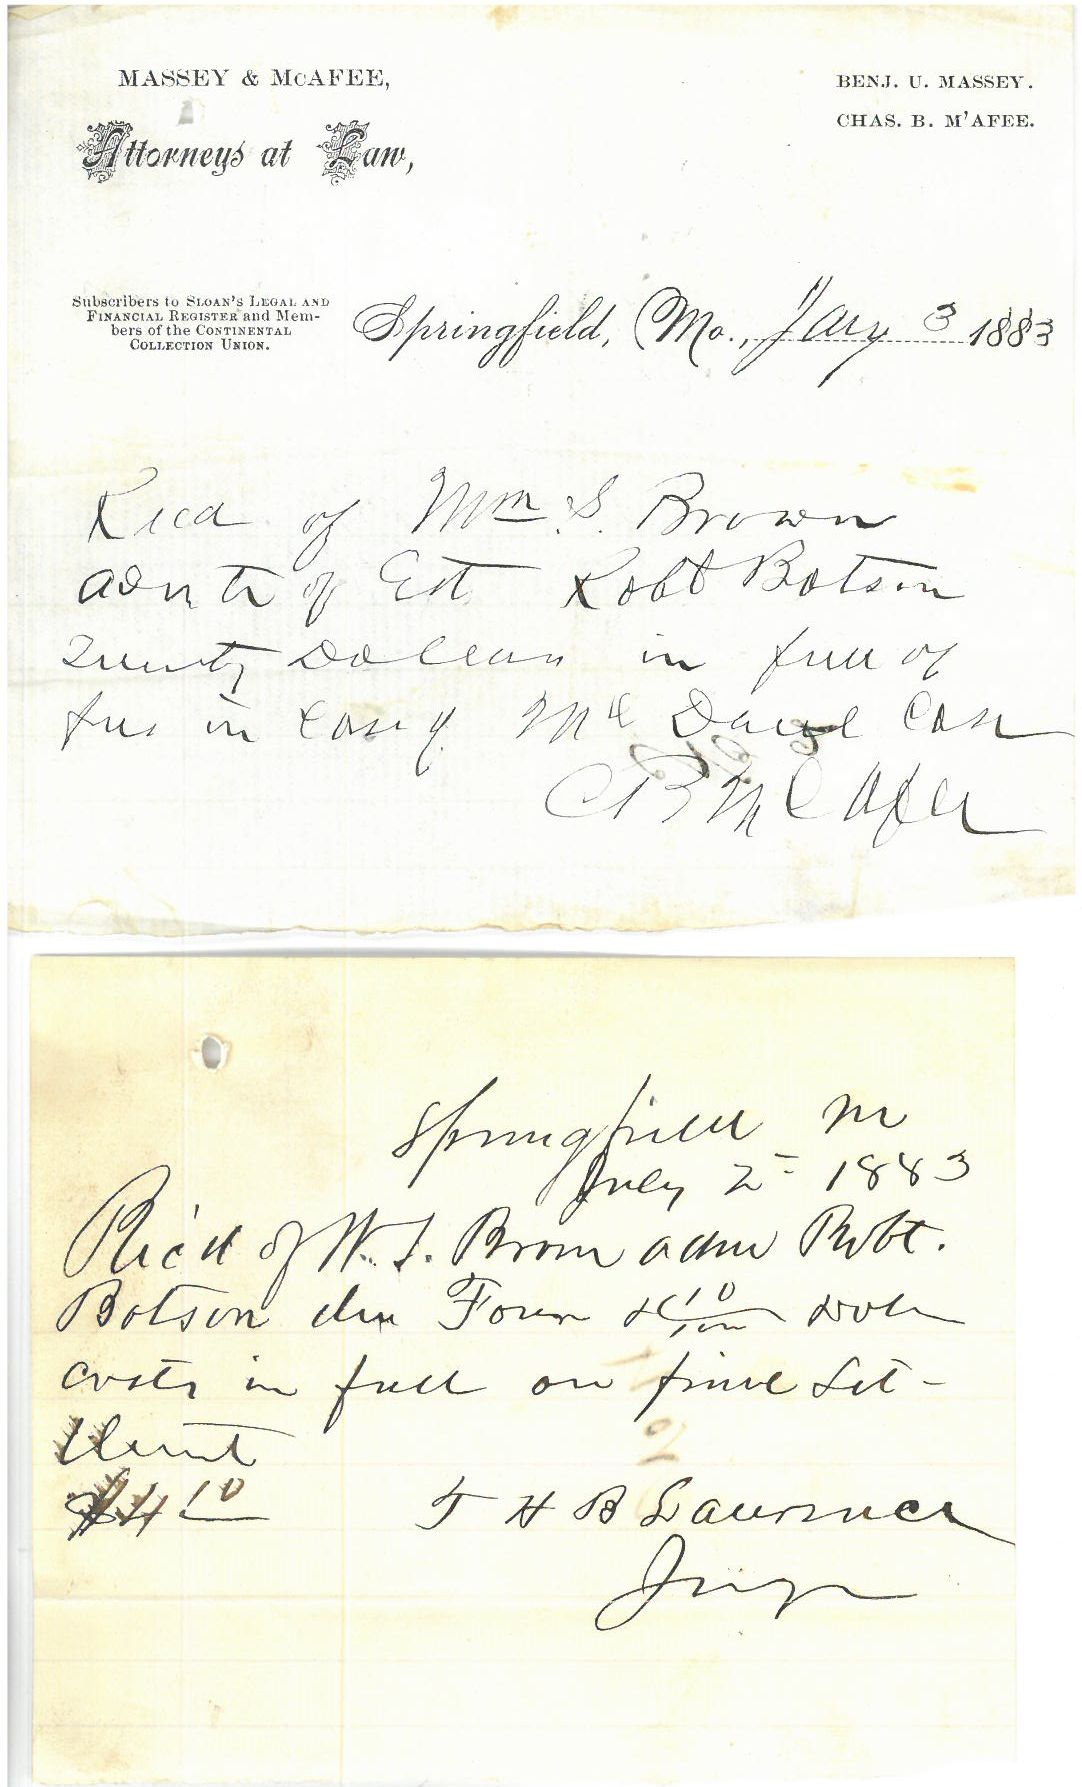 MASSEY & McAFEE,
Attorneys at Law,
BENJ. U. MASSEY.
CHAS. B. M'AFEE.
Subscribers to SLOAN'S LEGAL AND
FINANCIAL REGISTER and Mem-
bers of the CONTINENTAL
COLLECTION UNION.
Springfield, Mo., Jany 3 1883
Recd of Wm S. Brown
admtr of Est Robt Botson
Twenty Dollars in full of
fees in case of Mc Daniel Case
C B McAfee
Springfield Mo
July 2" 1883
Rec'd of W. S. Brown admr Robt.
Botson Four & 10/100 Dolls
costs in full on final Set-
tlement
$4 10
T H B Lawrence
Judge